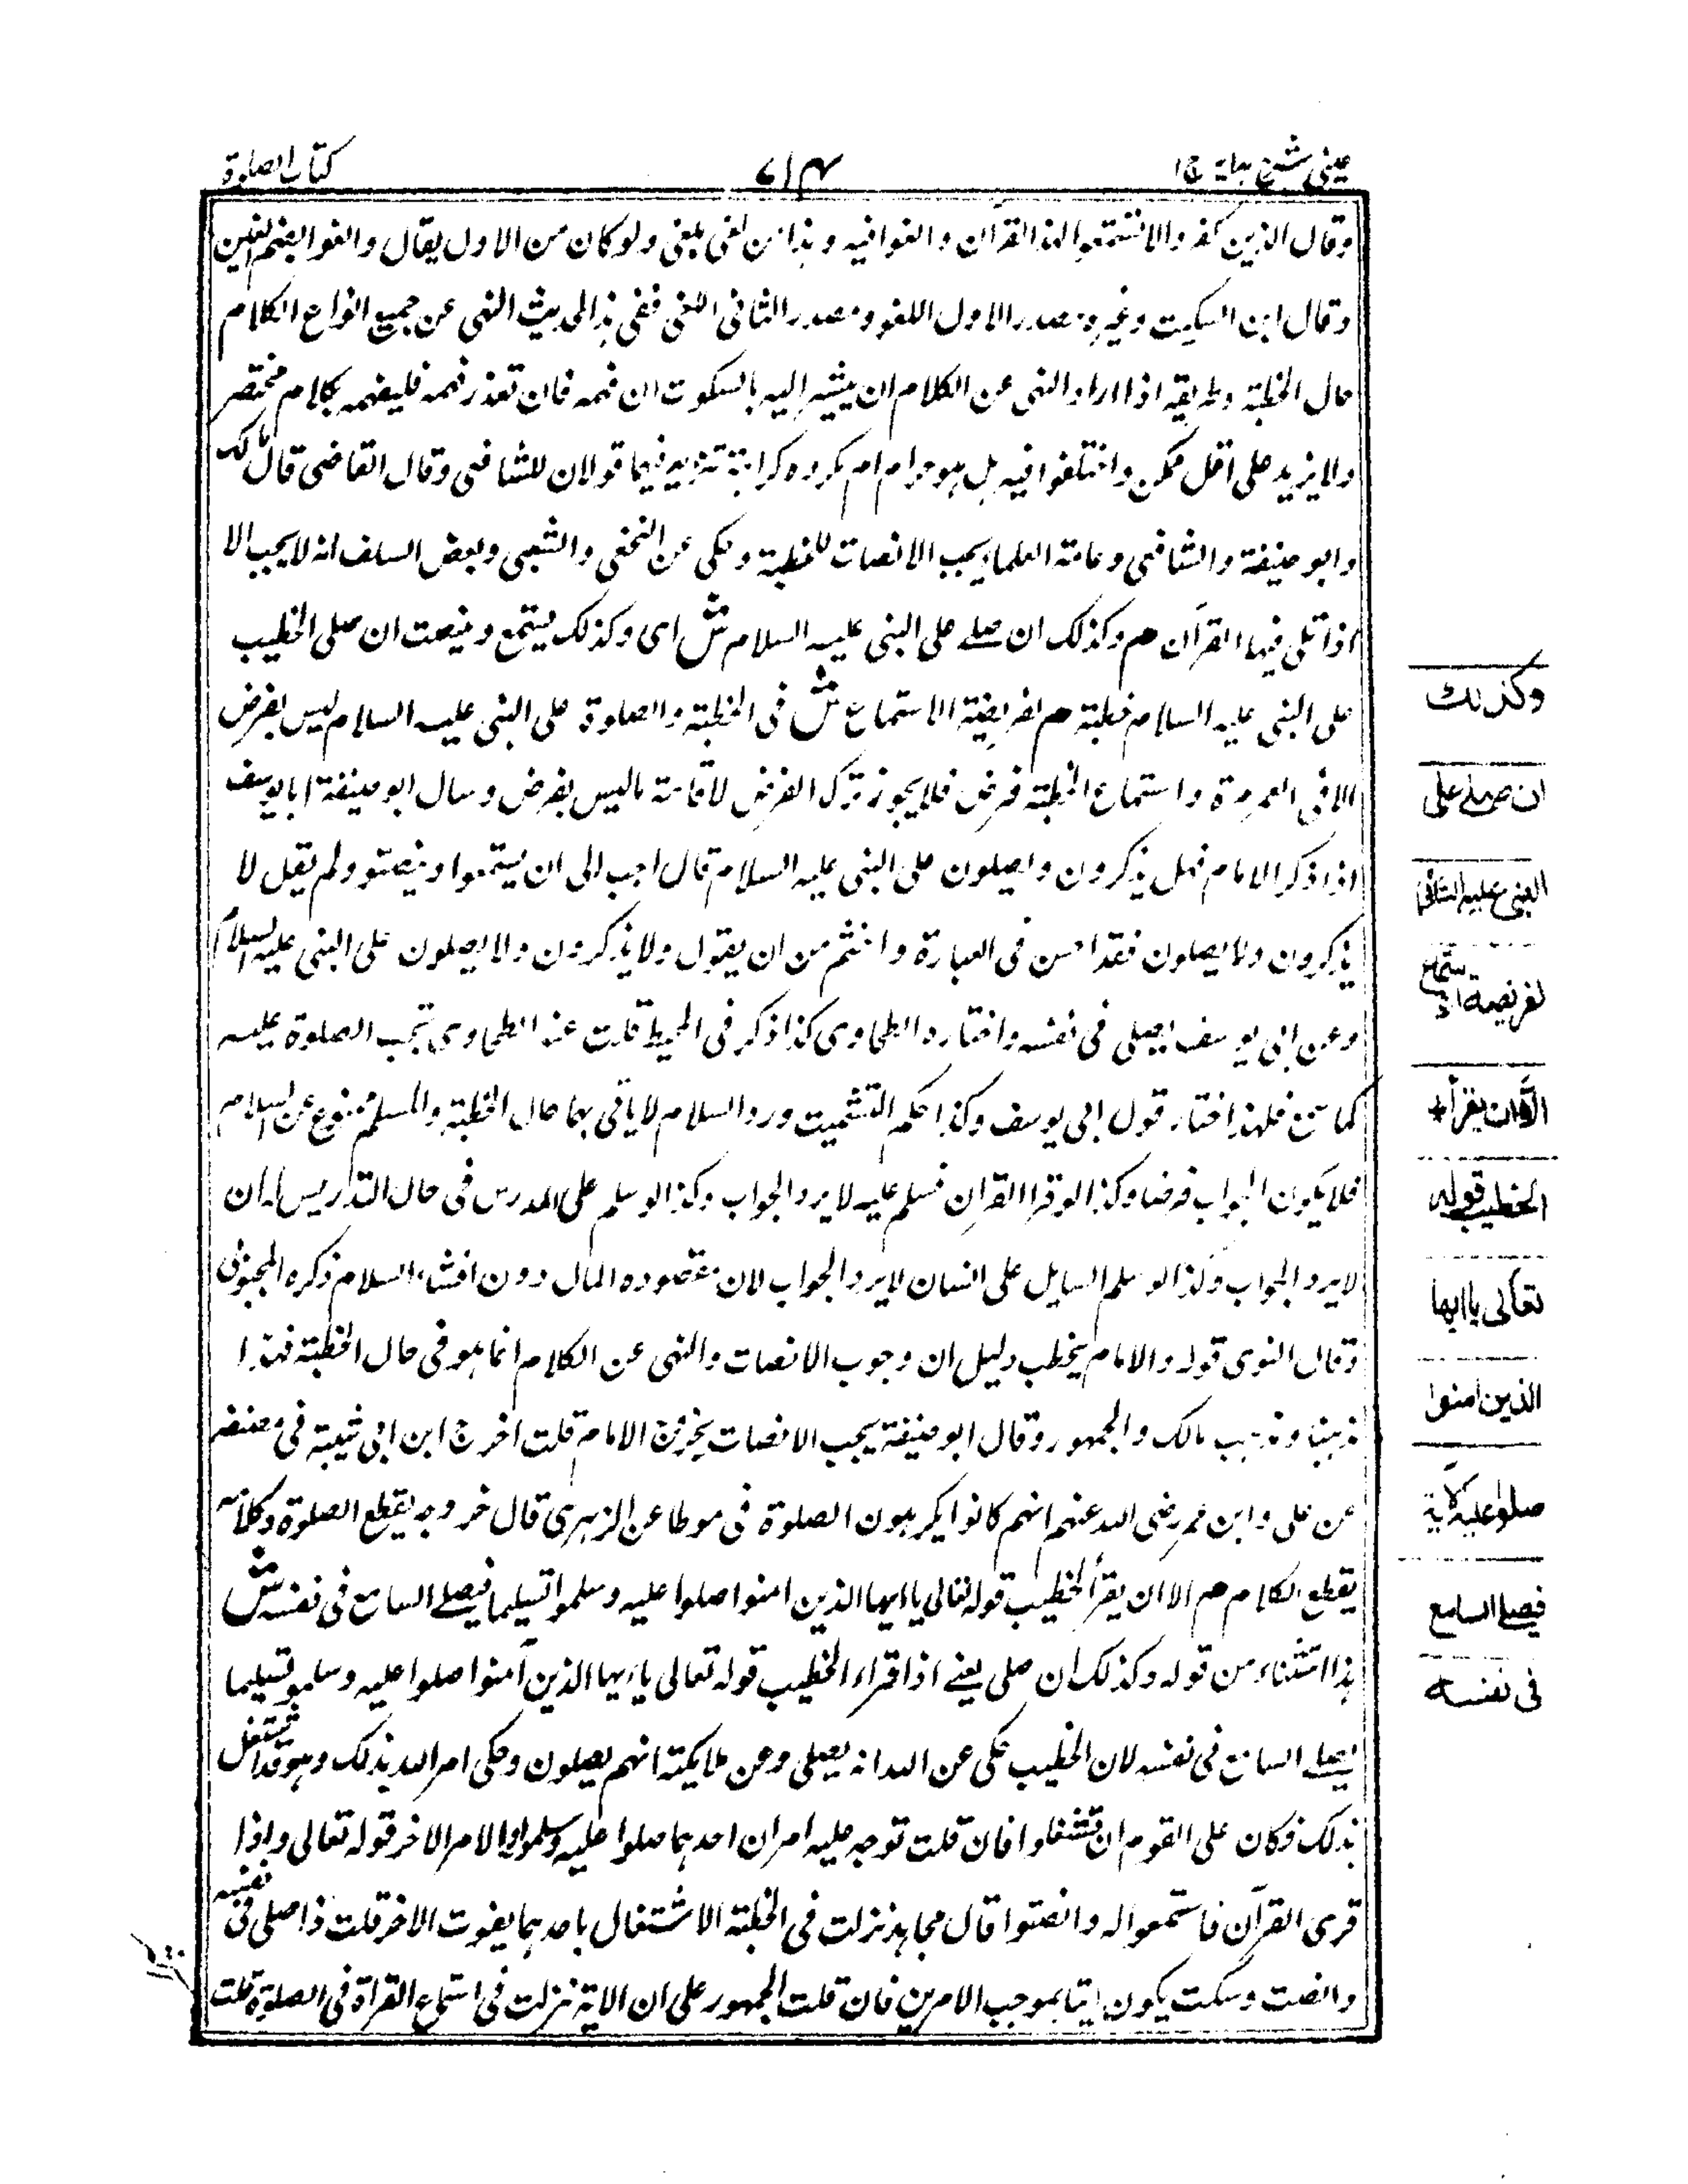 عینی شرح ہدایہ ج ا
۷۱۴
کتاب الصلوة
وقال الذين كفروا لا تسمعوا لهذا القرآن والغوا فيه وهذا من لغى يلغى ولو كان من الاول يقال والغوا بضم الغين
وقال ابن السكيت وغيره مصدر الاول اللغو ومصدر الثانى اللغى ففى هذا الحديث النهى عن جميع انواع الكلام
حال الخطبة وطريقه اذا اراد النهى عن الكلام ان يشير اليه بالسكوت ان فهمه فان تعذر فهمه فليفهمه بكلام مختصر
ولا يزيد على اقل ممكن واختلفوا فيه بل هو حرام ام مكروه كراهة تنزيه فيها قولان للشافعى وقال القاضى قال مالك
وابو حنيفة والشافعى وعامة العلماء يجب الانصات للخطبة وحكى عن النخعى والشعبى وبعض السلف انه لا يجب الا
اذا تلى فيها القرآن م وكذلك ان صلى على النبى عليه السلام ش اى وكذلك يستمع وينصت ان صلى الخطيب
على النبى عليه السلام خطبة م لفريضة الاستماع ش فى الخطبة والصلوة على النبى عليه السلام ليس بفرض
الا فى العمر مرة واستماع الخطبة فرض فلا يجوز ترك الفرض لاقامة ما ليس بفرض وسال ابو حنيفة ابا يوسف
اذا ذكر الامام فهل يذكرون ويصلون على النبى عليه السلام قال احب الى ان يستمعوا وينصتوا ولم يقل لا
يذكرون ولا يصلون فقد احسن فى العبارة واحتشم من ان يقول ولا يذكرون ولا يصلون على النبى عليه السلام
وعن ابى يوسف يصلى فى نفسه واختاره الطحاوى كذا ذكر فى المحيط قلت عند الطحاوى تجب الصلوة عليه
كما سمع فلهذا اختار قول ابى يوسف وكذا حكم التشميت ورد السلام لا ياتى بهما حال الخطبة والمسلم ممنوع عن السلام
فلا يكون الجواب فرضا وكذا لو قرأ القران فسلم عليه لا يرد الجواب وكذا لو سلم على المدرس فى حال التدريس له ان
لا يرد الجواب وكذا لو سلم السايل على انسان لا يرد الجواب لان مقصوده المال دون افشاء السلام ذكره المحبوبى
وقال النووى قوله والامام يخطب دليل ان وجوب الانصات والنهى عن الكلام انما هو فى حال الخطبة فهذا
مذهبنا ومذهب مالك والجمهور وقال ابو حنيفة يجب الانصات بخروج الامام قلت اخرج ابن ابى شيبة فى مصنفه
عن على وابن عمر رضى الله عنهم انهم كانوا يكرهون الصلوة فى موطا عن الزهرى قال خروجه يقطع الصلوة وكلامه
يقطع الكلام م الا ان يقرأ الخطيب قوله تعالى يا ايها الذين امنوا صلوا عليه وسلموا تسليما فيصلى السامع فى نفسه ش
هذا استثناء من قوله وكذلك ان صلى يعنى اذا قراء الخطيب قوله تعالى يا ايها الذين آمنوا صلوا عليه وسلموا تسليما
يصلى السامع فى نفسه لان الخطيب حكى عن الله انه يصلى وعن ملايكته انهم يصلون وحكى امر الله بذلك وهو قد اشتغل
بذلك فكان على القوم ان تشتغلوا فان قلت توجه عليه امران احدهما صلوا عليه وسلموا والامر الاخر قوله تعالى واذا
قرى القرآن فاستمعوا له وانصتوا قال مجاهد نزلت فى الخطبة الاشتغال باحدهما يفوت الاخر قلت اذا صلى فى نفسه
وانصت وسكت يكون اتيا بموجب الامرين فان قلت الجمهور على ان الاية نزلت فى استماع القراة فى الصلوة قلت
وكذلك
ان صلى على
النبى عليه السلام
لفريضة الاستماع
الا ان يقرأ
الخطيب قوله
تعالى يا ايها
الذين امنوا
صلوا عليه الآية
فيصلى السامع
فى نفسه